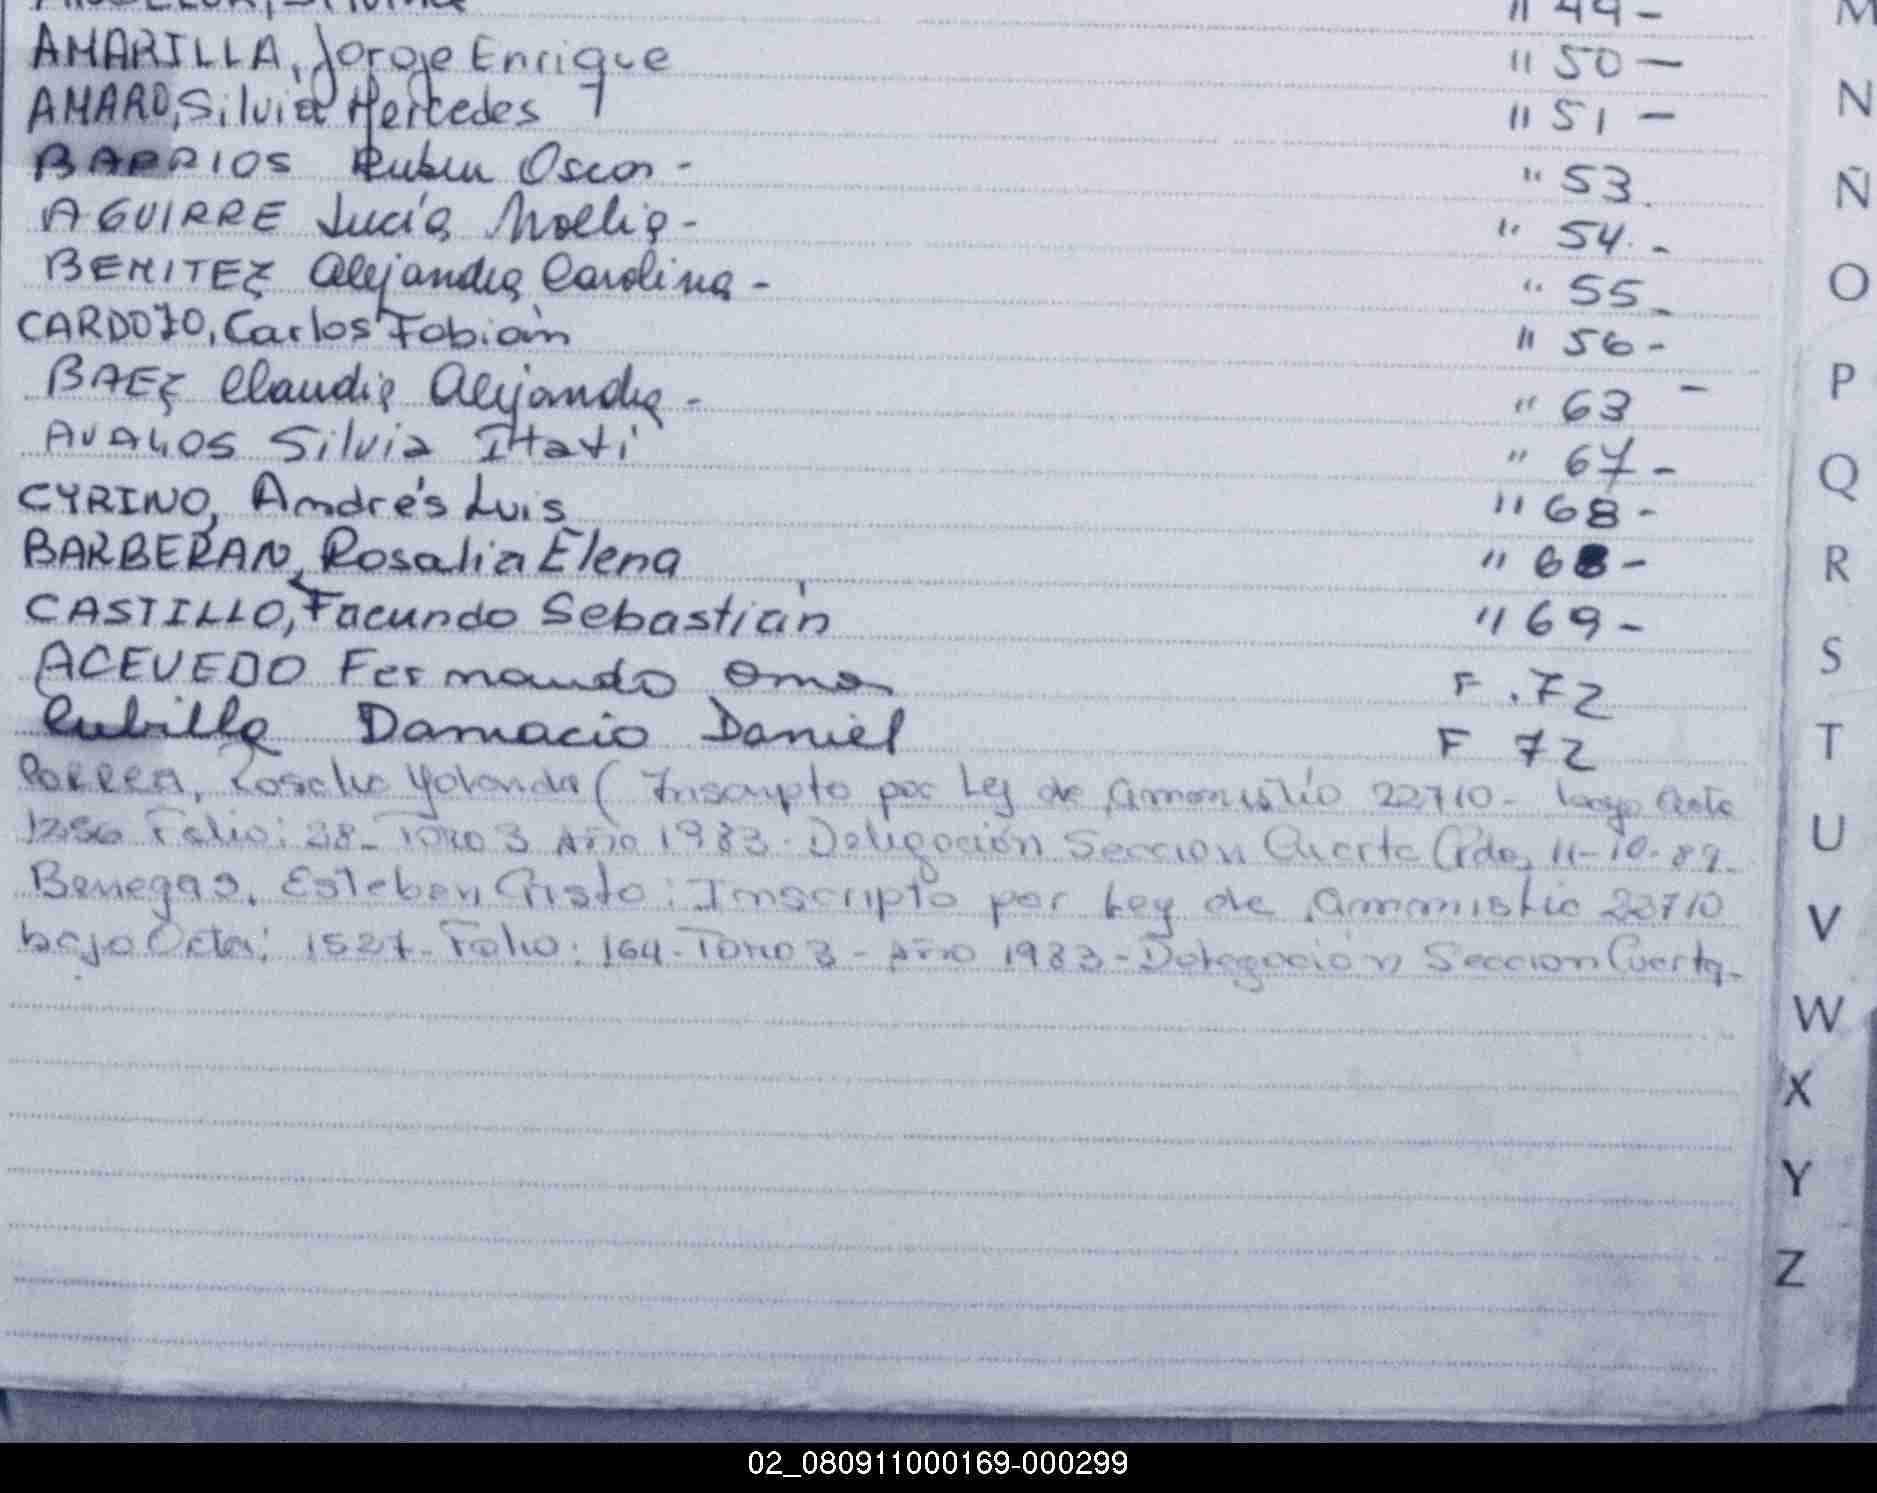 " 49-
AMARILLA, Jorge Enrique " 50-
AMARO, Silvia Mercedes " 51-
BARRIOS Ruben Oscar- " 53.
AGUIRRE Lucía Noelia- " 54.-
BENITEZ Alejandra Carolina- " 55-
CARDOZO, Carlos Fabián " 56-
BAEZ Claudia Alejandra- " 63 -
AVALOS Silvia Itatí " 67-
CYRINO, Andrés Luis " 68-
BARBERAN, Rosalia Elena " 68-
CASTILLO, Facundo Sebastián " 69-
ACEVEDO Fernando Omar F.72
Cubilla Damacio Daniel F 72
Yolanda (Inscripto por Ley de Amonistío 22710- bajo Acta
1286 Folio: 38- Tomo 3 Año 1983- Delegación Seccion Cuarta Pdas, 11-10-89-
Benegas, Esteban Cristo: Inscripto por Ley de Ammistia 22710
bajo Acta: 1527- Folio: 164- Tomo 3- Año 1983- Delegación Seccion Cuarta-
M
N
Ñ
O
P
Q
R
S
T
U
V
W
X
Y
Z
02_080911000169-000299